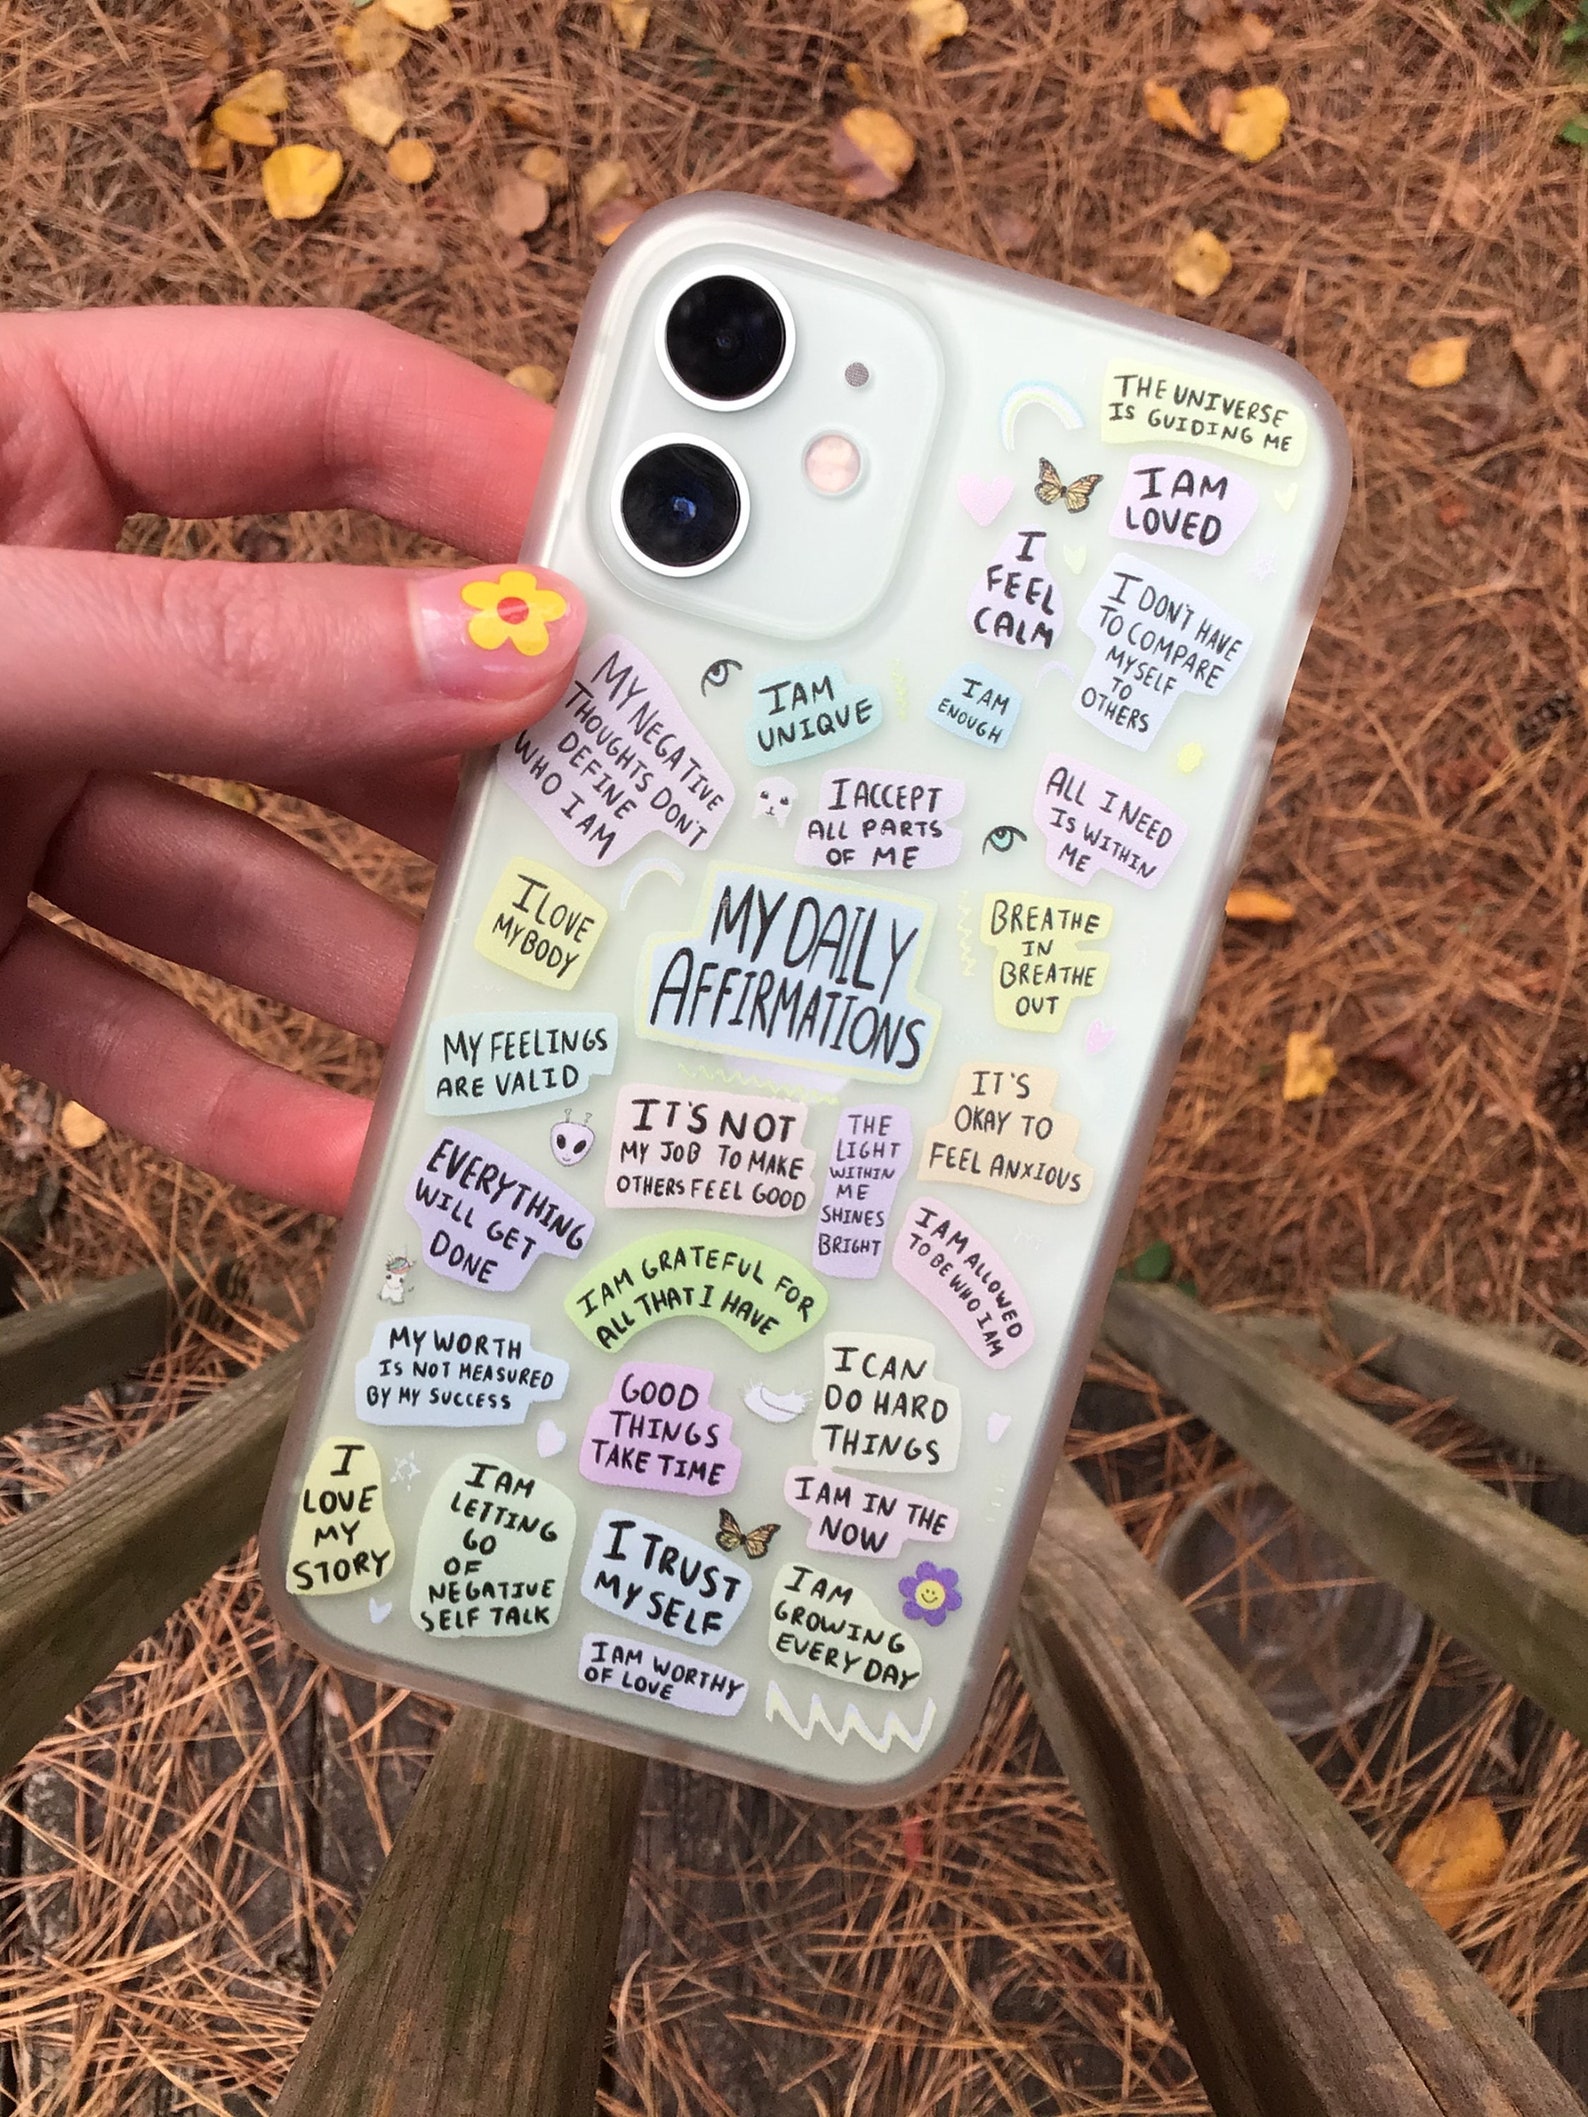 THE UNIVERSE
IS GUIDING ME
I AM
LOVED
I
FEEL
CALM
I DON'T HAVE
TO COMPARE
MYSELF
TO
OTHERS
MY NEGATIVE
THOUGHTS DON'T
DEFINE
WHO I AM
I AM
UNIQUE
I AM
ENOUGH
I ACCEPT
ALL PARTS
OF ME
ALL I NEED
IS WITHIN
ME
I LOVE
MY BODY
MY DAILY
AFFIRMATIONS
BREATHE
IN
BREATHE
OUT
MY FEELINGS
ARE VALID
IT'S NOT
MY JOB TO MAKE
OTHERS FEEL GOOD
THE
LIGHT
WITHIN
ME
SHINES
BRIGHT
IT'S
OKAY TO
FEEL ANXIOUS
EVERYTHING
WILL GET
DONE
I AM GRATEFUL FOR
ALL THAT I HAVE
I AM ALLOWED
TO BE WHO I AM
MY WORTH
IS NOT MEASURED
BY MY SUCCESS
GOOD
THINGS
TAKE TIME
I CAN
DO HARD
THINGS
I
LOVE
MY
STORY
I AM
LETTING
GO
OF
NEGATIVE
SELF TALK
I TRUST
MYSELF
I AM IN THE
NOW
I AM
GROWING
EVERY DAY
I AM WORTHY
OF LOVE